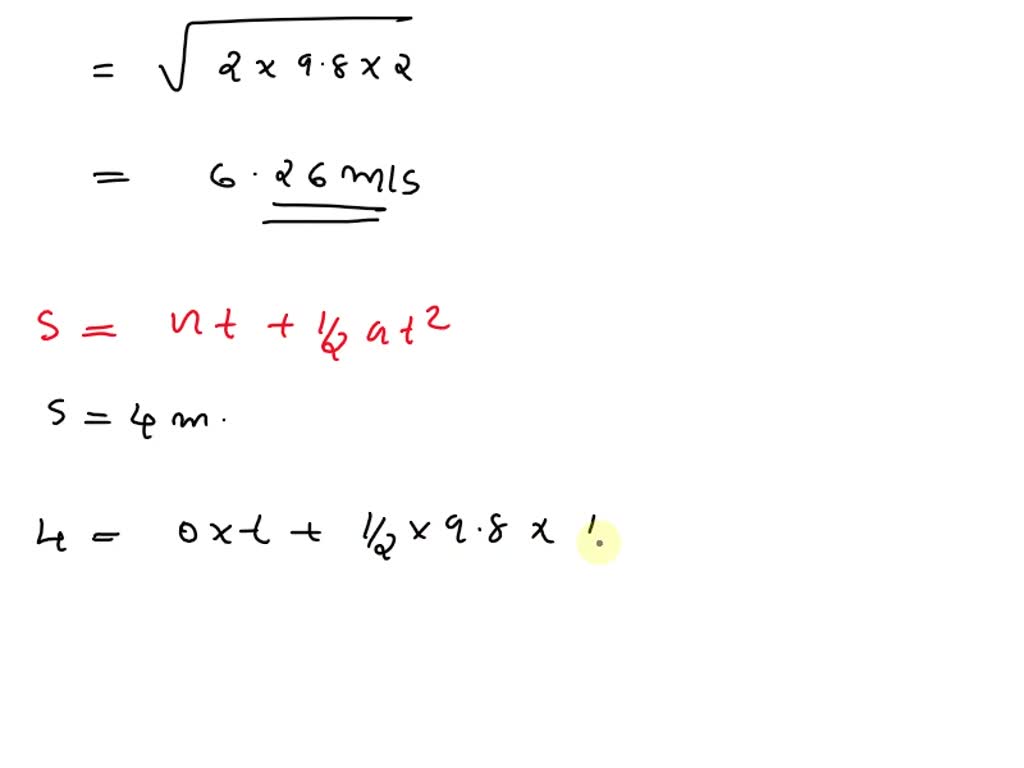 = √2 × 9.8 × 2
= 6.26 m/s
S = ut + 1/2 at²
S = 4 m.
4 = 0 × t + 1/2 × 9.8 ×